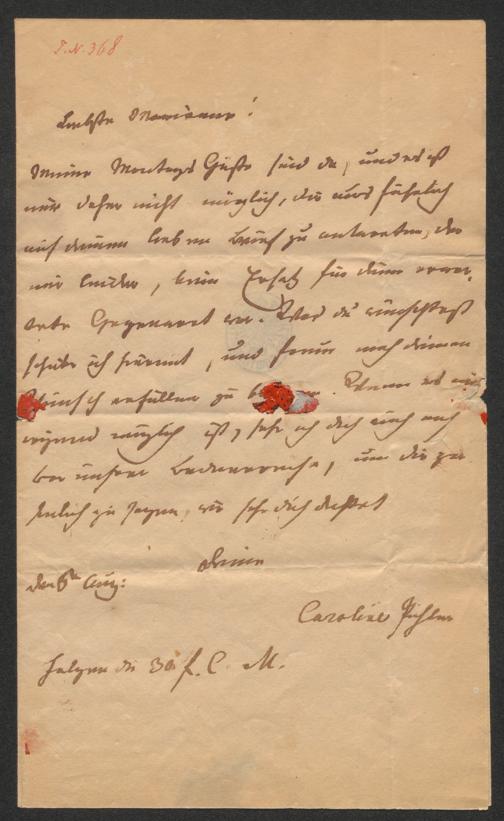 I.N. 368
Liebste Marianne!
Meine Montags Gäste sind da, und es ist
mir daher nicht möglich, dir ausführlich
auf deinen lieben Brief zu antworten, der
mir leider, kein Ersatz für deine erwar-
tete Gegenwart war. Was du wünschest
schicke ich hiermit, und freue mich deinen
Wunsch erfüllen zu. Wenn es mir
irgend möglich ist, sehe ich dich auch noch
vor unserer Badnerreise, um dir
zu sagen, wie sehr dich
Deine
den 6n Aug:
Caroline Pichler
Folgen die 30 f. C. M.